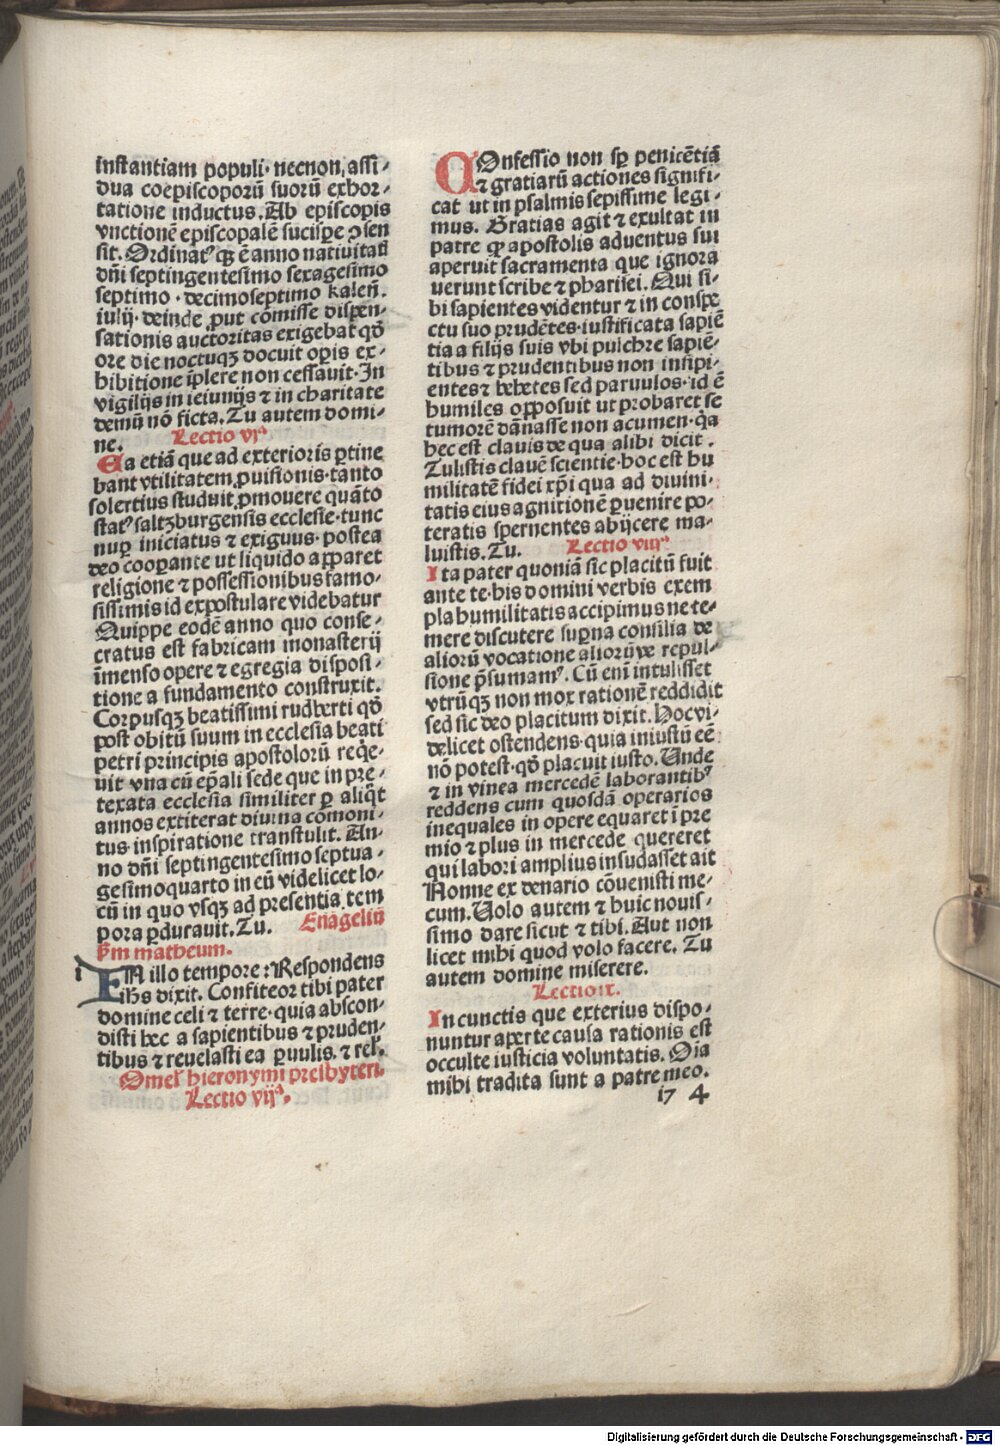 instantiam populi· necnon assi⸗
dua coepiscoporū suorū exhor⸗
tatione inductus. Ab episcopis
vnctionē episcopalē suscipe ↄsen
sit. Ordinatꝰ qꝫ ē anno natiuitatē
dñi septingentesimo sexagesimo
septimo · decimoseptimo kaleñ.
iulij· deinde ꝓut cōmisse dispen⸗
sationis auctoritas exigebat qđ
ore die noctuqꝫ docuit oꝑis ex⸗
hibitione īplere non cessauit· In
vigilijs in ieiunijs ⁊ in charitate
demū nō ficta. Tu autem domi⸗
ne. Lectio vjᵃ
Ea etiā que ad exterioris ꝑtine
bant vtilitatem ꝓuisionis· tanto
solertius studuit ꝓmouere quāto
statꝰ saltzburgensis ecclesie· tunc
nuꝑ iniciatus ⁊ exiguus· postea
deo cooꝑante ut liquido apparet
religione ⁊ possessionibus famo⸗
sissimis id expostulare videbatur
Quippe eodē anno quo conse⸗
cratus est fabricam monasterij
īmenso opere ⁊ egregia disposi⸗
tione a fundamento construxit.
Corpusqꝫ beatissimi rudberti qđ
post obitū suum in ecclesia beati
petri principis apostolorū reqͥe⸗
uit vna cū eꝑ̄ali sede que in pre⸗
texata ecclesia similiter ꝑ aliqͦt
annos extiterat diuina cōmoni⸗
tus inspiratione transtulit. An⸗
no dñi septingentesimo septua⸗
gesimoquarto in eū videlicet lo⸗
cū in quo vsqꝫ ad presentia tem
pora ꝑdurauit. Tu. Euāgeliū
ẜm matheum.
i IN illo tempore: Respondens
ihs̄ dixit. Confiteor tibi pater
domine celi ⁊ terre· quia abscon⸗
disti hec a sapientibus ⁊ pruden⸗
tibus ⁊ reuelasti ea ꝑuulis. ⁊ rel̄.
Omel̄ hieronymi presbyteri.
Lectio vijᵃ.
COnfessio non sꝑ penitētiā
⁊ gratiarū actiones signifi⸗
cat ut in psalmis sepissime legi⸗
mus. Gratias agit ⁊ exultat in
patre ꝙ apostolis aduentus sui
aperuit sacramenta que ignora
uerunt scribe ⁊ pharisei. Qui si⸗
bi sapientes videntur ⁊ in conspe
ctu suo prudētes· iustificata sapiē
tia a filijs suis vbi pulchre sapiē⸗
tibus ⁊ prudentibus non insipi⸗
entes ⁊ hebetes sed paruulos· id ē
humiles opposuit ut probaret se
tumorē dānasse non acumen· qͥa
hec est clauis de qua alibi dicit .
Tulistis clauē scientie· hoc est hu
militatē fidei xp̄i qua ad diuini⸗
tatis eius agnitionē ꝑuenire po⸗
teratis spernentes abijcere ma⸗
luistis. Tu. Lectio viijᵃ
Ita pater quoniā sic placitū fuit
ante te· his domini verbis exem
pla humilitatis accipimus ne te⸗
mere discutere suꝑna consilia de
aliorū vocatione aliorūve repul⸗
sione p̄sumamꝰ. Cū enī intulisset
vtrūqꝫ non mox rationē reddidit
sed sic deo placitum dixit. Hoc vi⸗
delicet ostendens· quia iniustū eē
nō potest· qđ placuit iusto. Unde
⁊ in vinea mercedē laborantibꝰ
reddens cum quosdā operarios
inequales in opere equaret ī pre
mio ⁊ plus in mercede quereret
qui labori amplius insudasset ait
Nonne ex denario cōuenisti me⸗
cum. Uolo autem ⁊ huic nouis⸗
simo dare sicut ⁊ tibi. Aut non
licet mihi quod volo facere. Tu
autem domine miserere.
Lectio ix.
In cunctis que exterius dispo⸗
nuntur aperte causa rationis est
occulte iusticia voluntatis. Oīa
mihi tradita sunt a patre meo.
17 4
Digitalisierung gefördert durch die Deutsche Forschungsgemeinschaft - DFG